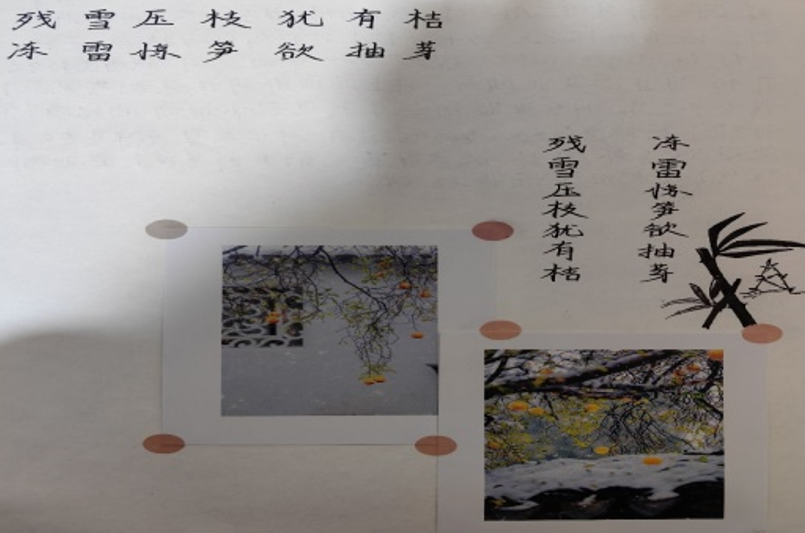 残雪压枝犹有桔
冻雷惊笋欲抽芽
残雪压枝犹有桔
冻雷惊笋欲抽芽